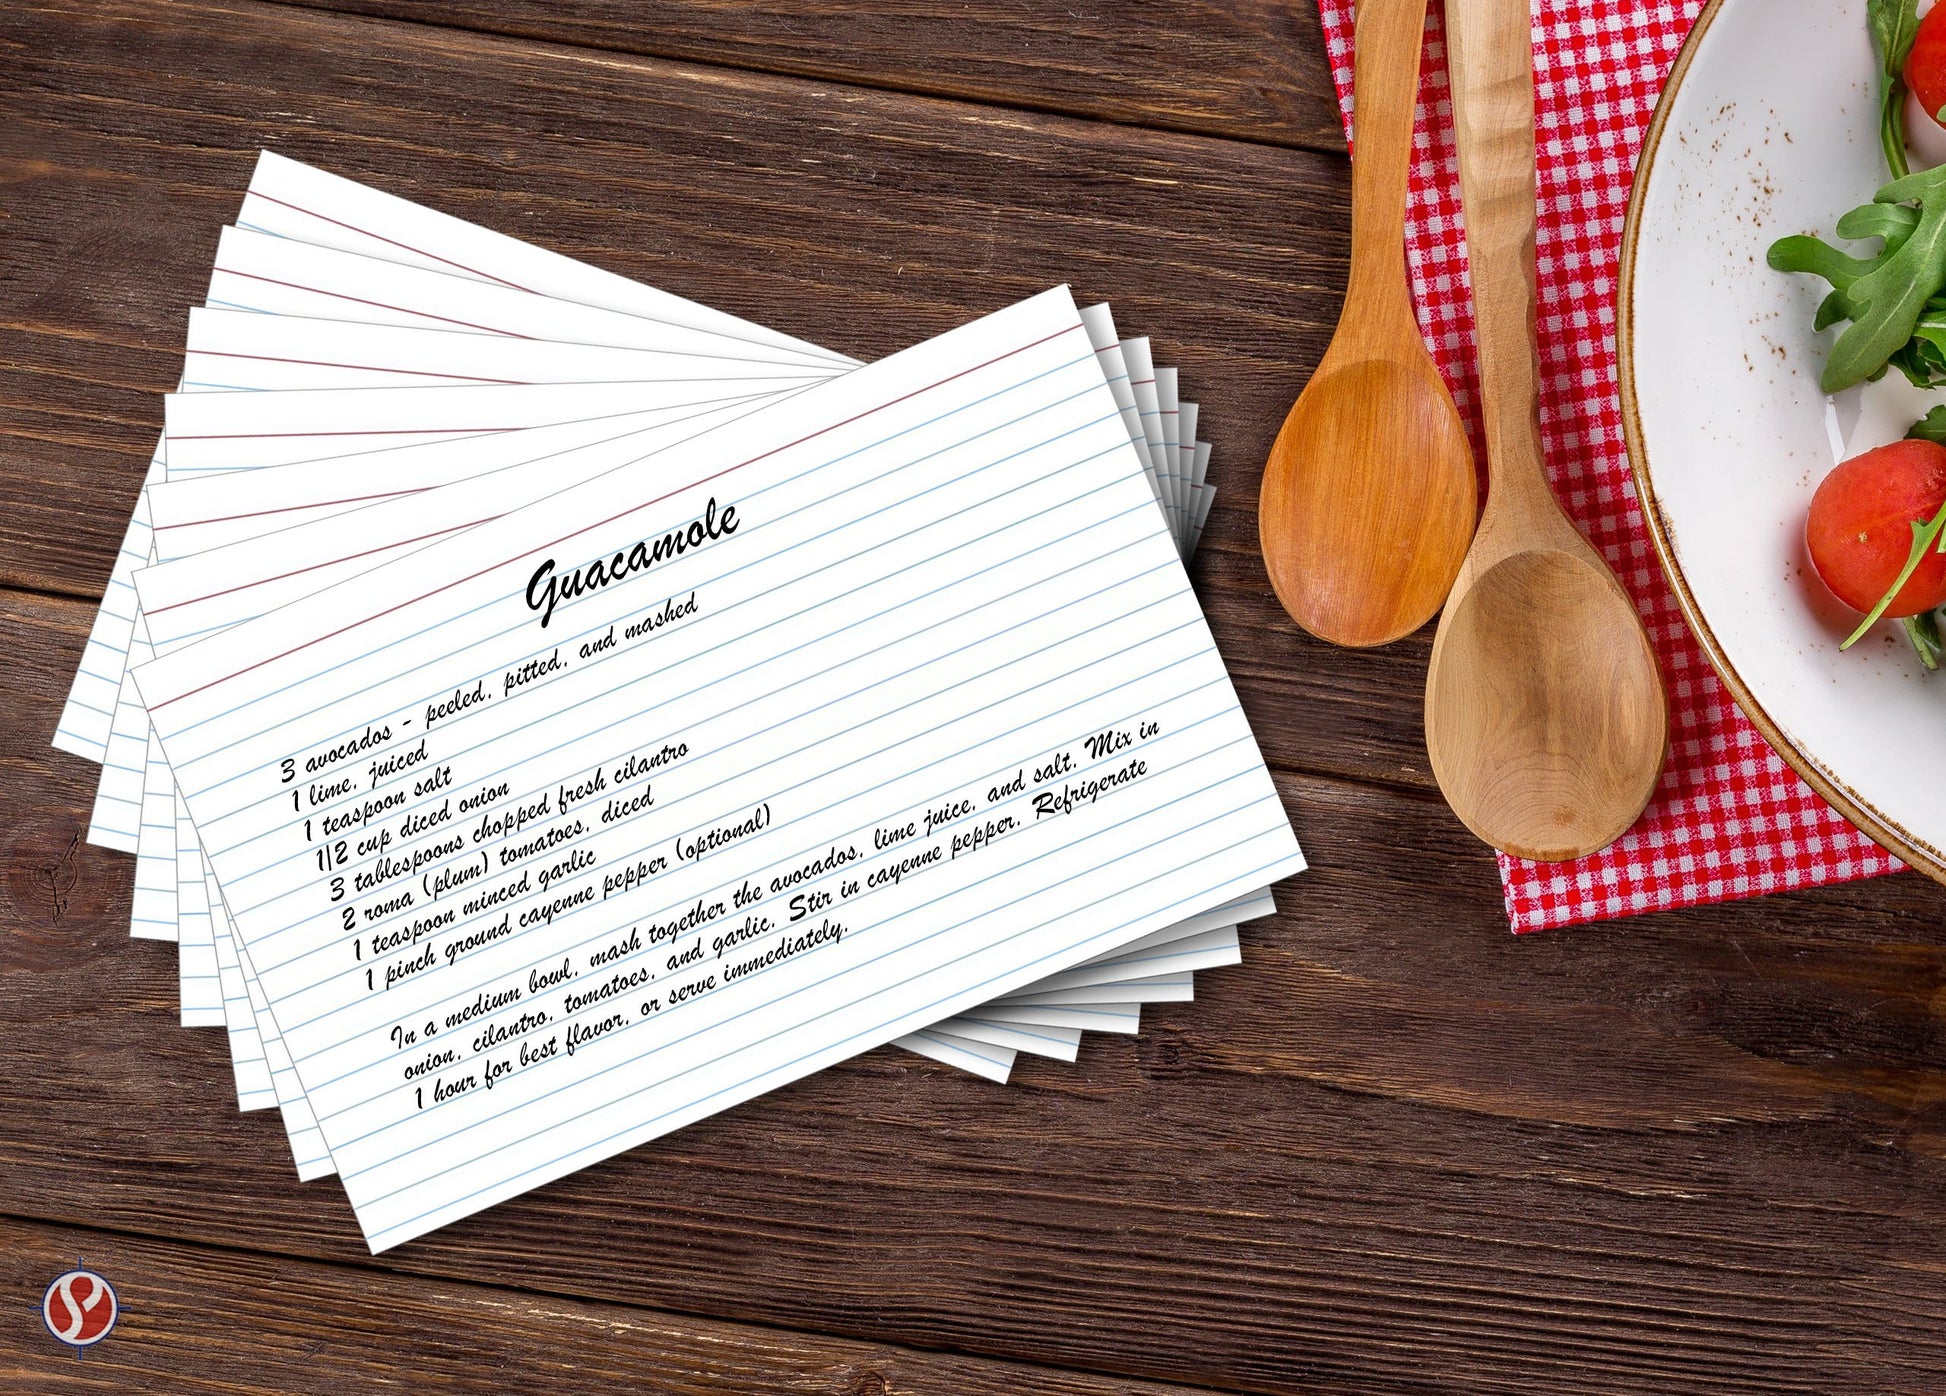 Guacamole
3 avocados - peeled, pitted, and mashed
1 lime, juiced
1 teaspoon salt
1/2 cup diced onion
3 tablespoons chopped fresh cilantro
2 roma (plum) tomatoes, diced
1 teaspoon minced garlic
1 pinch ground cayenne pepper (optional)
In a medium bowl, mash together the avocados, lime juice, and salt. Mix in
onion, cilantro, tomatoes, and garlic. Stir in cayenne pepper. Refrigerate
1 hour for best flavor, or serve immediately.